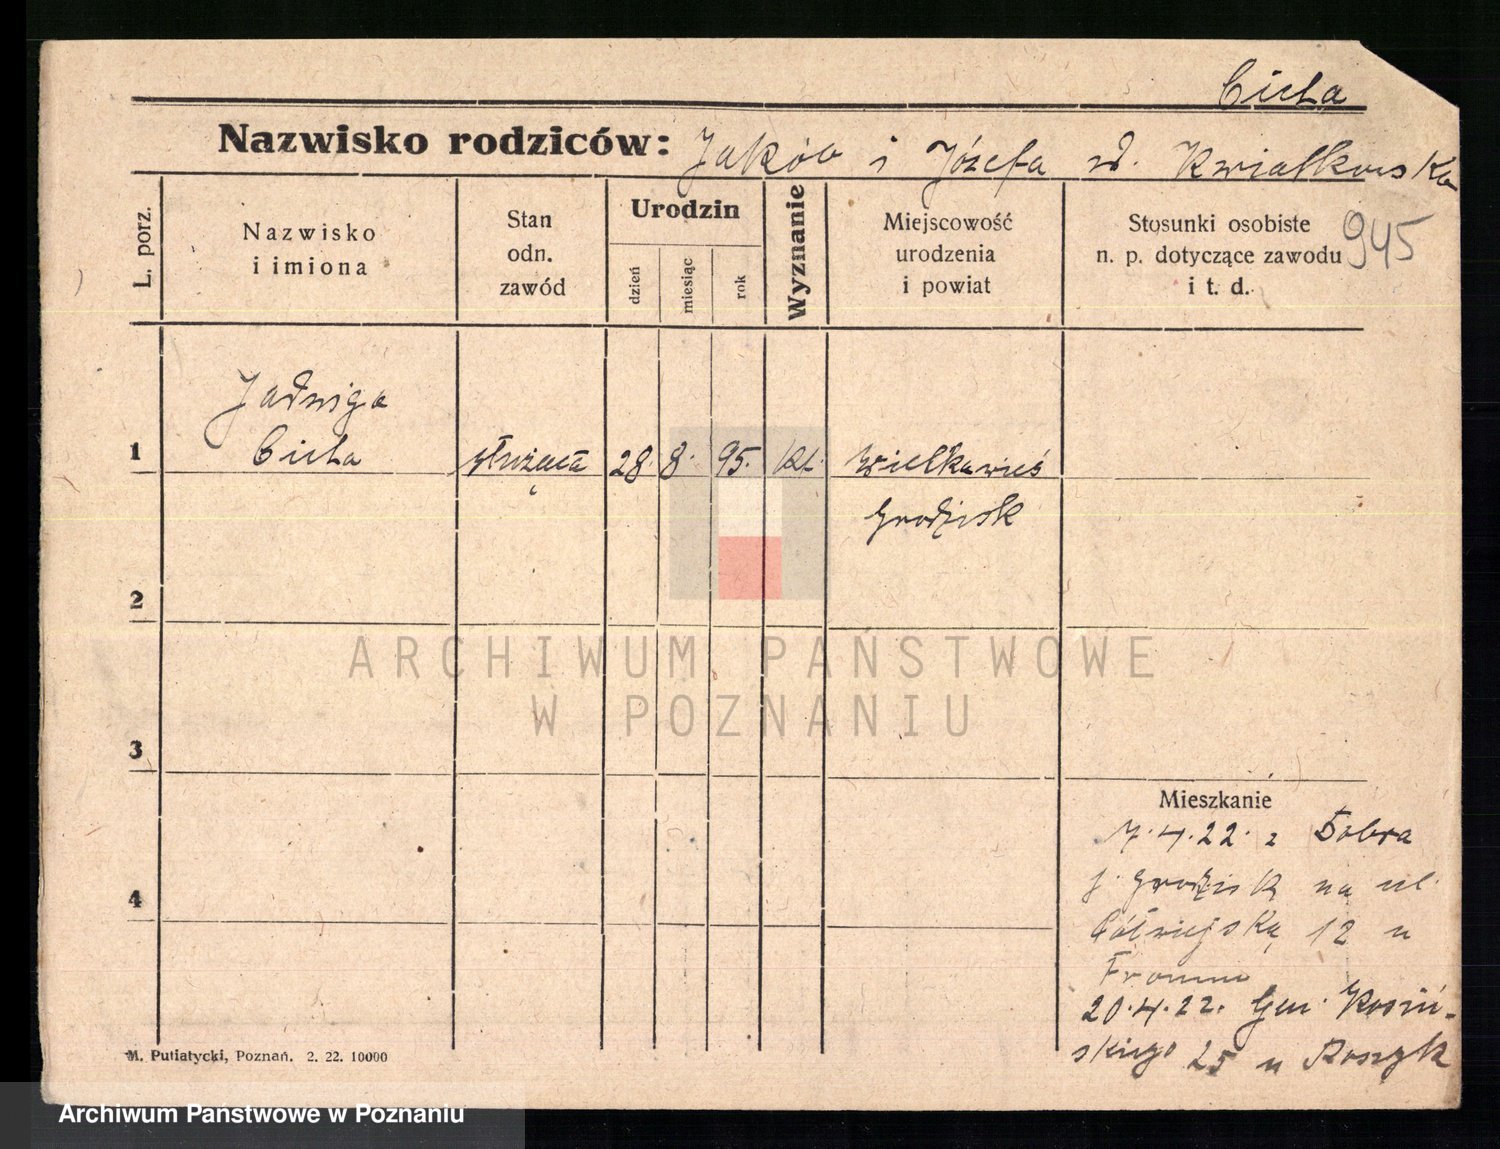 Cicha
Nazwisko rodziców: Jakób i Józefa zd. Kwiatkowska
945
L. porz.
Nazwisko
i imiona
Stan
odn.
zawód
Urodzin
dzień
miesiąc
rok
Wyznanie
Miejscowość
urodzenia
i powiat
Stosunki osobiste
n. p. dotyczące zawodu
i t. d.
Jadwiga
1 Cicha służąca 28. 8. 95. kt. Wielkawieś
Grodzisk
2
3
4
Mieszkanie
7.4.22. z Dobra
p. Grodzisk na ul.
Półwiejską 12 u
Fromm
20.4.22. Gen. Kosiń-
skiego 25 u Roszyk
M. Putiatycki, Poznań. 2. 22. 10000
ARCHIWUM PAŃSTWOWE
W POZNANIU
Archiwum Państwowe w Poznaniu